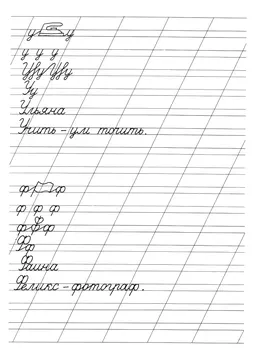 у у
у у у
Уу Уу
Уу
Ульяна
Учить - ум точить.
ф ф
ф ф ф
ф Ф ф
Фф
Фаина
Феликс - фотограф.